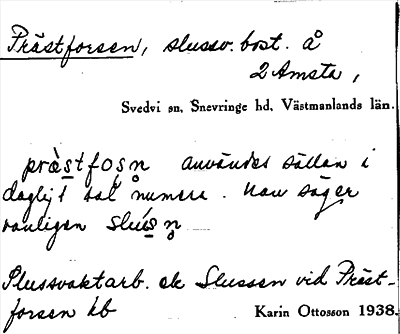 Prästforsen, slussv. bost. å
2 Åmsta,
Svedvi sn, Snevringe hd, Västmanlands län.
præ̀stfoṣn̥ användes sällan i
dagligt tal numera. Man säger
vanligen slúṣn̥
Slussvaktarb. ek Slussen vid Präst-
forsen kb
Karin Ottosson 1938.